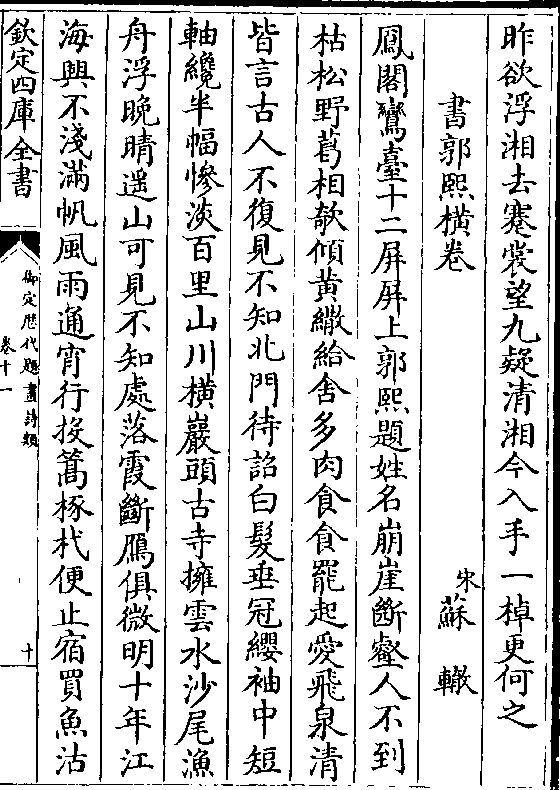 昨欲浮湘去蹇裳望九疑清湘今入手一棹更何之
書郭熙横卷
宋蘇轍
鳳閣鸞臺十二屏屏上郭熙題姓名崩崖斷壑人不到
枯松野葛相欹傾黄繖給舍多肉食食罷起愛飛泉清
皆言古人不復見不知北門待詔白髮垂冠纓袖中短
軸纔半幅慘淡百里山川横巖頭古寺擁雲水沙尾漁
舟浮晚晴遥山可見不知處落霞斷鴈俱微明十年江
海興不淺滿帆風雨通宵行投篙椓杙便止宿買魚沽
欽定四庫全書
御定歴代題畫詩類
卷十一
十